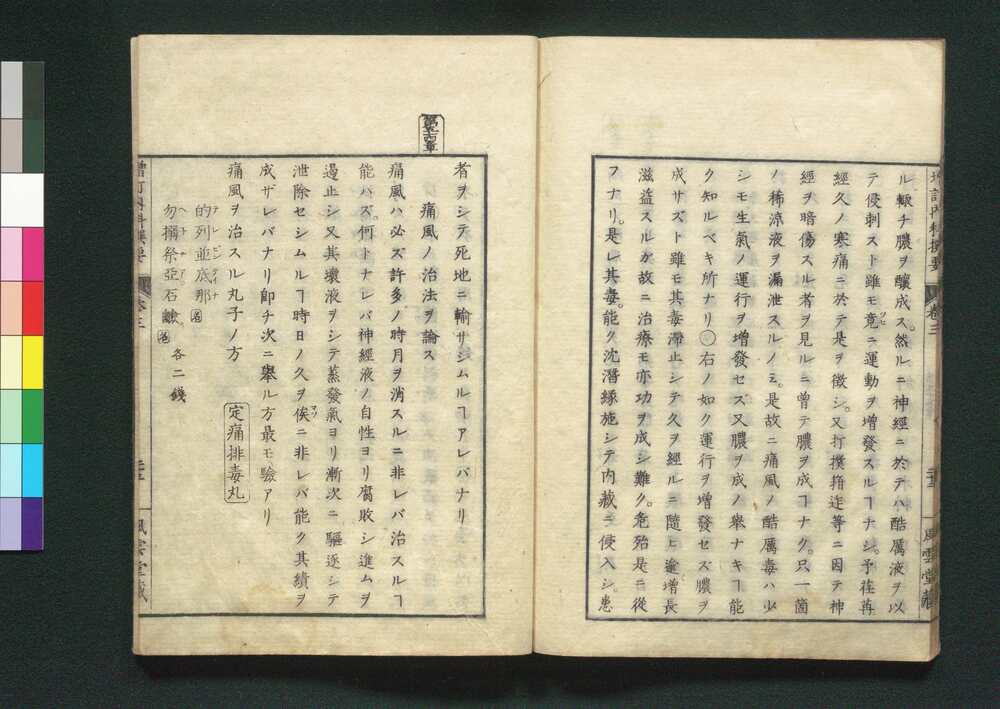 増訂内科撰要
卷三
風雲堂藏
ル輙チ膿ヲ釀成ス。然ルニ神經ニ於テハ酷厲液ヲ以
テ侵刺スト雖モ竟ニ運動ヲ増發スルヿナシ。予徃再
經久ノ寒痛ニ於テ是ヲ徴シ。又打撲等ニ因テ神
經ヲ暗傷スル者ヲ見ルニ曾テ膿ヲ成ヿナク。只一箇
ノ稀涼液ヲ漏泄スルノミ。是故ニ痛風ノ酷厲毒ハ少
シモ生氣ノ運行ヲ増發セズ又膿ヲ成ノ擧ナキヿ能
ク知ルベキ所ナリ〇右ノ如ク運行ヲ増發セズ膿ヲ
成サズト雖モ其毒滯止シテ久ヲ經ルニ隨ヒ逾増長
滋益スルガ故ニ治療モ亦功ヲ成シ難ク。危殆是ニ從
フナリ。是レ其毒。能ク沈潛縁施シテ内藏ニ侵入シ。患
者ヲシテ死地ニ輸サシムルヿアレバナリ
痛風ノ治法ヲ論ス
痛風ハ必ズ許多ノ時月ヲ消スルニ非レバ治スルヿ
能ハズ。何トナレバ神經液ノ自性ヨリ腐敗シ進ムヲ
遏止シ又其壞液ヲシテ蒸發氣ヨリ漸次ニ驅逐シテ
泄除セシムルヿ時日ノ久ヲ俟ニ非レバ能ク其績ヲ
成ザレバナリ即チ次ニ擧ル方最モ驗アリ
痛風ヲ治スル丸子ノ方
定痛排毒丸
的列並底那
勿搦祭亞石鹸
各二錢
増訂内科撰要
卷三
風雲堂藏